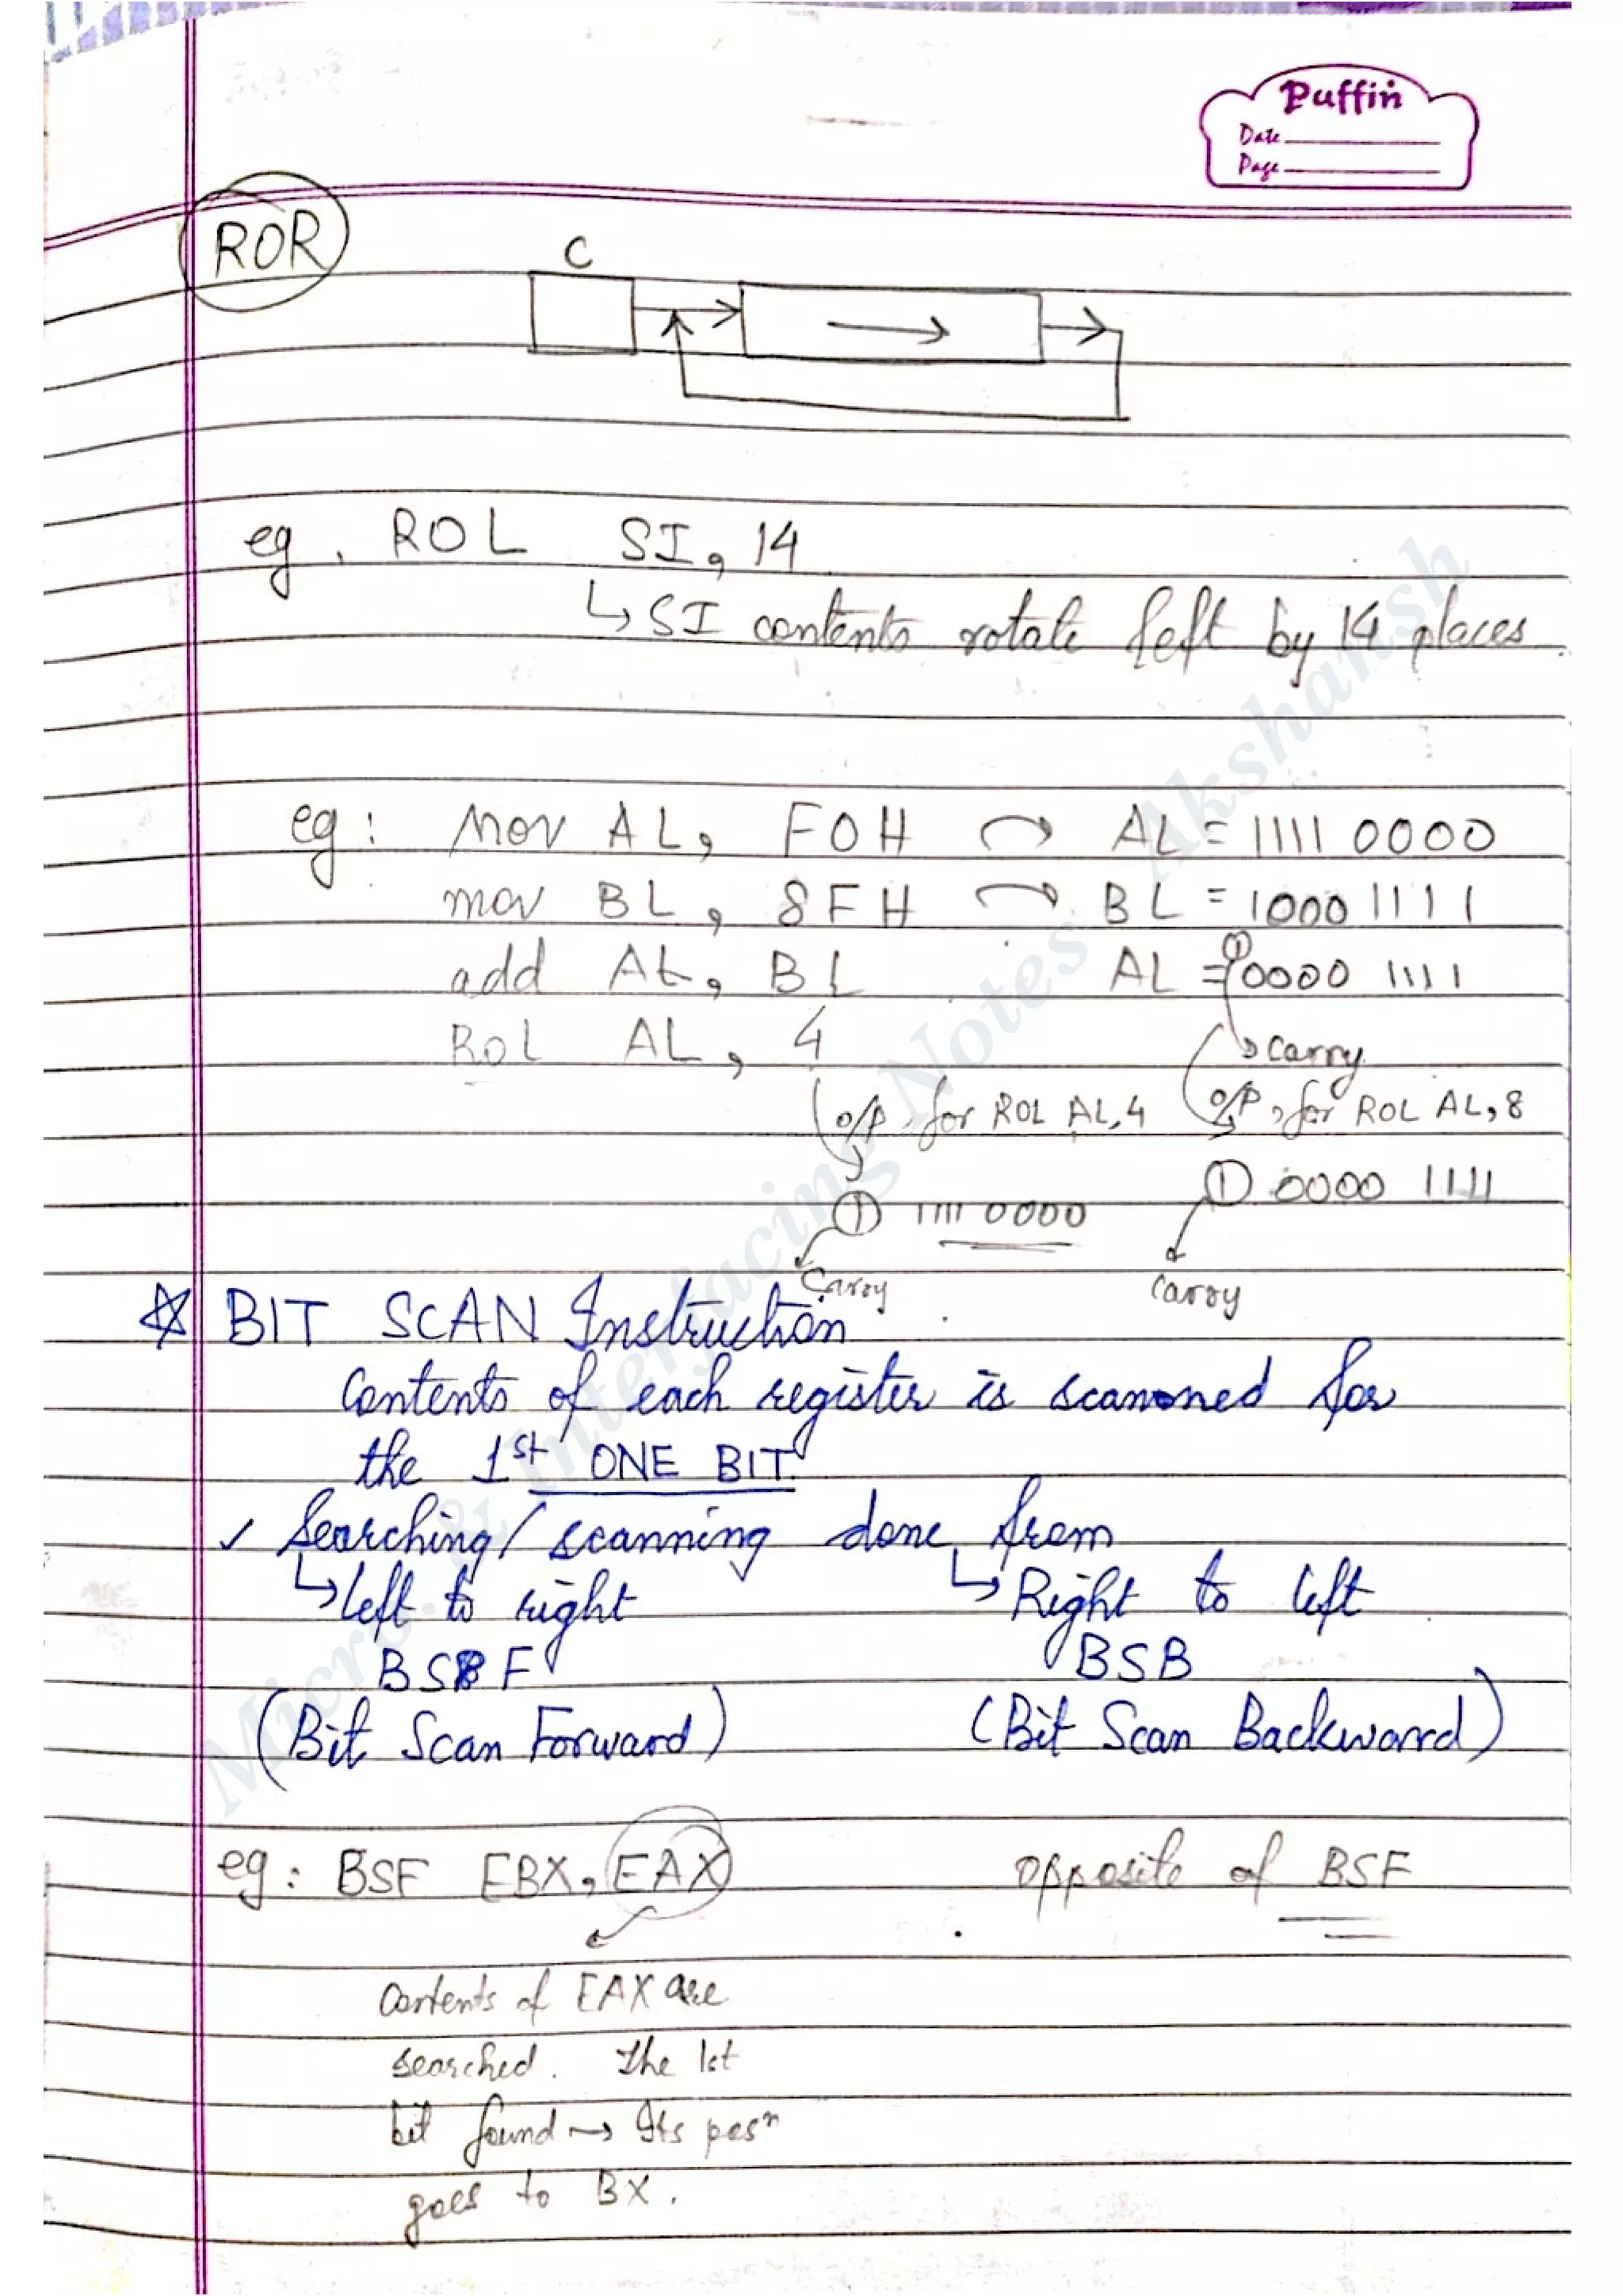 Puffin
Date
Page
ROR
C
eg. ROL SI, 14
↳ SI contents rotate left by 14 places.
eg: Mov AL, F0H AL = 1111 0000
mov BL, 8FH BL = 1000 1111
add AL, BL AL = ① 0000 1111
ROL AL, 4
↳ carry
o/p for ROL AL, 4 o/p, for ROL AL, 8
① 0000 1111
① 1111 0000
Carry Carry
☆ BIT SCAN Instruction
Contents of each register is scanned for
the 1st ONE BIT.
✓ Searching/scanning done from
↳ left to right ↳ Right to left
BSF BSB
(Bit Scan Forward) (Bit Scan Backward)
eg: BSF EBX, EAX opposite of BSF
Contents of EAX are
searched. The 1st
bit found → Its posn
goes to BX.
Micro. & Interfacing Notes Akshansh